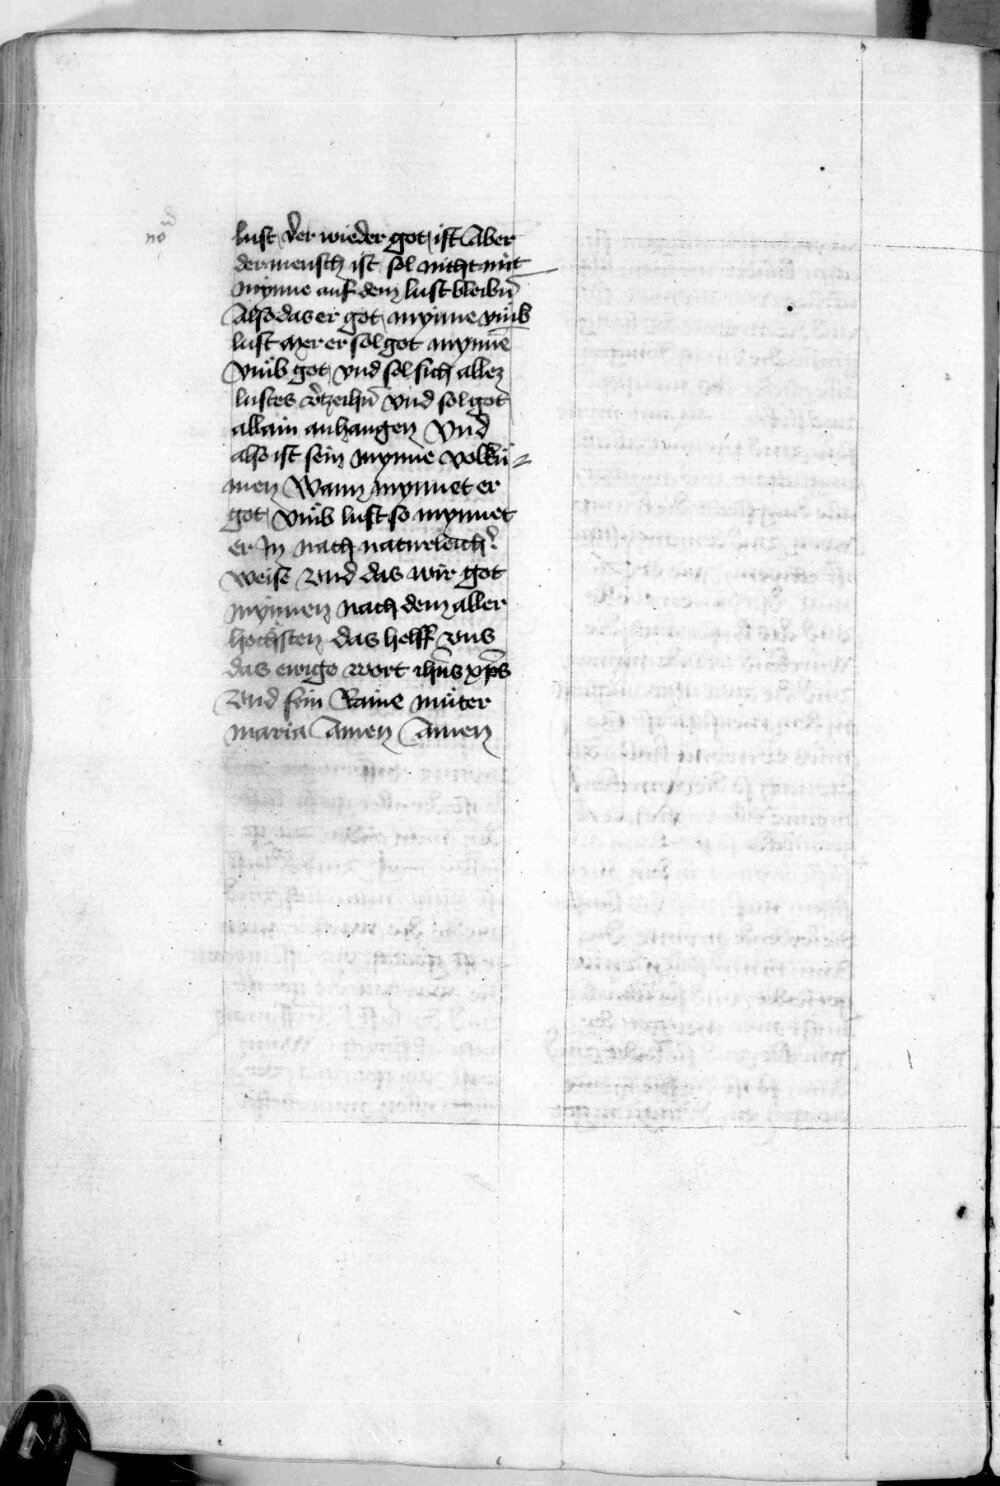 no
lust der wieder got ist Aber
der mensch ist sol nicht mit
mynne auf dem lust bleibn̄
Also das er got mynne vmb
lust Mer er sol got mynnē
Vmb got vnd sol sich allez
lustes v̄tzeihn̄ vnd sol got
allain anhangen Vnd
also ist sein mynne volkū=
men Wann mynnet er
got vmb lust so mynnet
er In nach natureleich̄
weise Vnd das wir got
mynnen nach dem aller
höchsten das helff vns
das ewige wort ihūs xp̄s
Vnd sein Raine můter
maria Amen Amen